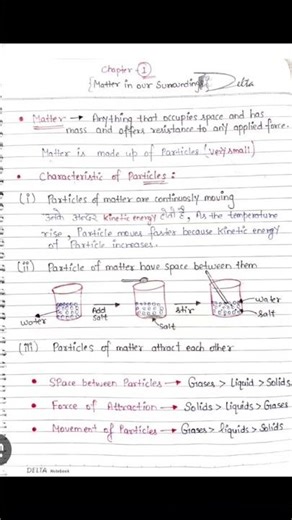 Chapter - 1
{Matter in our Surrounding} Delta
• Matter → Anything that occupies space and has
mass and offers resistance to any applied force.
Matter is made up of Particles (very small)
• Characteristic of Particles :
(i) Particles of matter are continuosly moving
उनके अन्दर kinetic energy होती है, As the temperature
rise, Particle moves faster because kinetic energy
of Particle increases.
(ii) Particle of matter have space between them
water Add salt Salt stir water salt
(iii) Particles of matter attract each other
• Space between Particles → Gases > liquid > Solids
• Force of Attraction → Solids > liquids > Gases
• Movement of Particles → Gases > liquids > Solids
DELTA Notebook